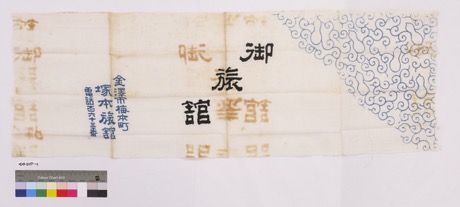 御
旅
舘
金澤市梅本町
塚本旅舘
電話百六十三番